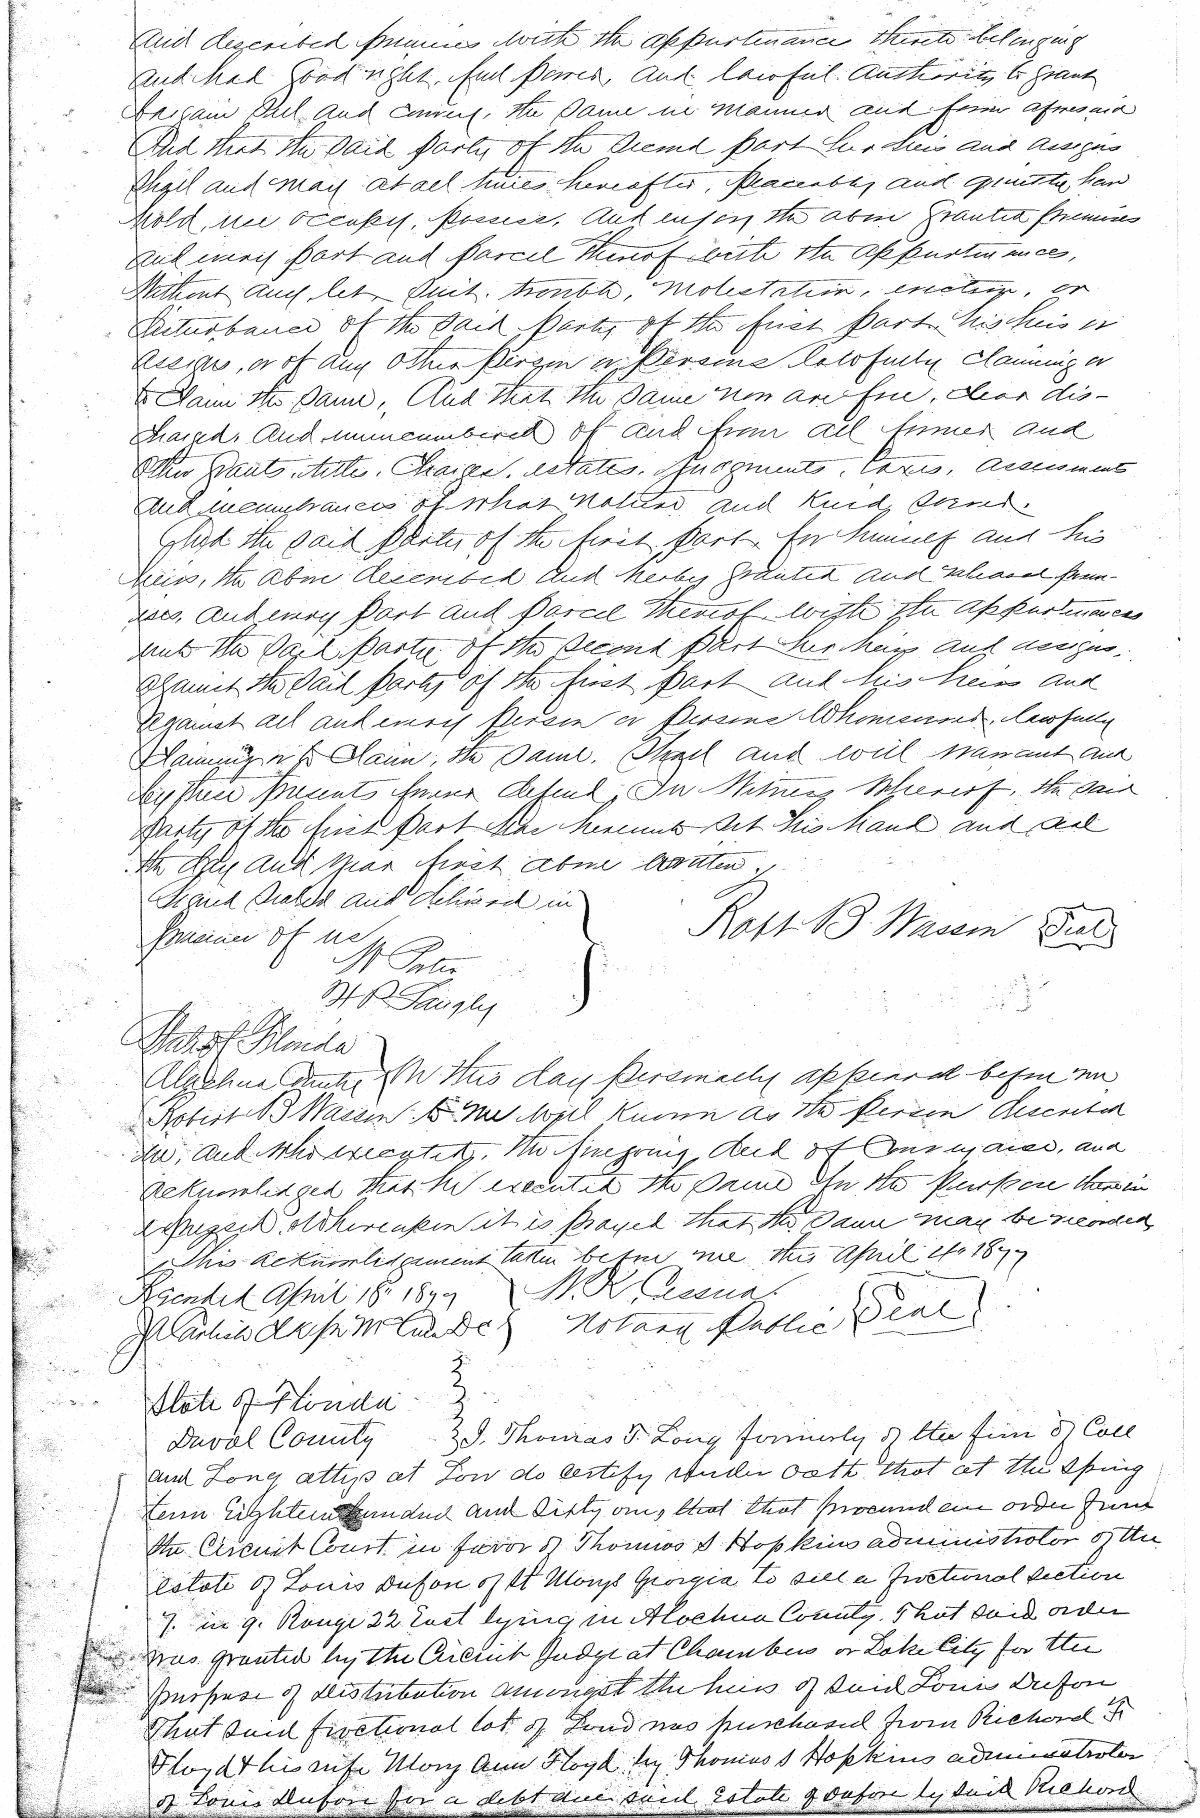 and described premises with the appurtenances thereto belonging
and had good right, full power, and lawful authority to grant
bargain sell and convey, the same in manner and form aforesaid
And that the said party of the second part her heirs and assigns
shall and may at all times hereafter, peaceably and quietly have
hold, use occupy, possess, and enjoy the above granted premises
and every part and parcel thereof with the appurtenances,
Without any let, suit, trouble, molestation, eviction, or
disturbance of the said party of the first part his heirs or
assigns, or of any other person or persons lawfully claiming or
to claim the same, And that the same now are free, clear dis-
charged, And unincumbered of and from all former and
other grants, titles, charges, estates, judgments, taxes, assessments
and incumbrances of what nature and kind soever.
And the said party of the first part for himself and his
heirs, the above described and hereby granted and released prem-
ises, and every part and parcel thereof with the appurtenances
unto the said party of the second part her heirs and assigns,
against the said party of the first part and his heirs and
against all and every person or persons Whomsoever, lawfully
claiming or to claim, the same. Shall and will warrant and
by these presents forever defend, In Witness Whereof, the said
party of the first part has hereunto set his hand and seal
the day and year first above written.
Signed sealed and delivered in
presence of us
Robt B Wasson Seal
H R
State of Florida
Alachua County On this day personally appeared before me
Robert B Wasson to me well known as the person described
in, and who executed, the foregoing deed of conveyance, and
acknowledged that he executed the same for the purpose therein
expressed, Whereupon it is prayed that the same may be recorded
This acknowledgement taken before me this April 4th 1877
Recorded April 18th 1877 W. K. Cessna.
Notary Public Seal
State of Florida
Duval County I, Thomas F. Long formerly of the firm of Call
and Long attys at Law do certify under oath that at the Spring
term Eighteen hundred and Sixty one, that that procured an order from
the Circuit Court in favor of Thomas S Hopkins administrator of the
estate of Louis Dufon of St Marys Georgia to sell a fractional section
7. in 9. Range 22 East lying in Alachua County. That said order
was granted by the Circuit Judge at Chambers or Lake City for the
purpose of distribution amongst the heirs of said Louis Dufon
That said fractional lot of Land was purchased from Richard F.
Floyd & his wife Mary Ann Floyd by Thomas S Hopkins administrator
of Louis Dufon for a debt due said Estate of Dufon by said Richard